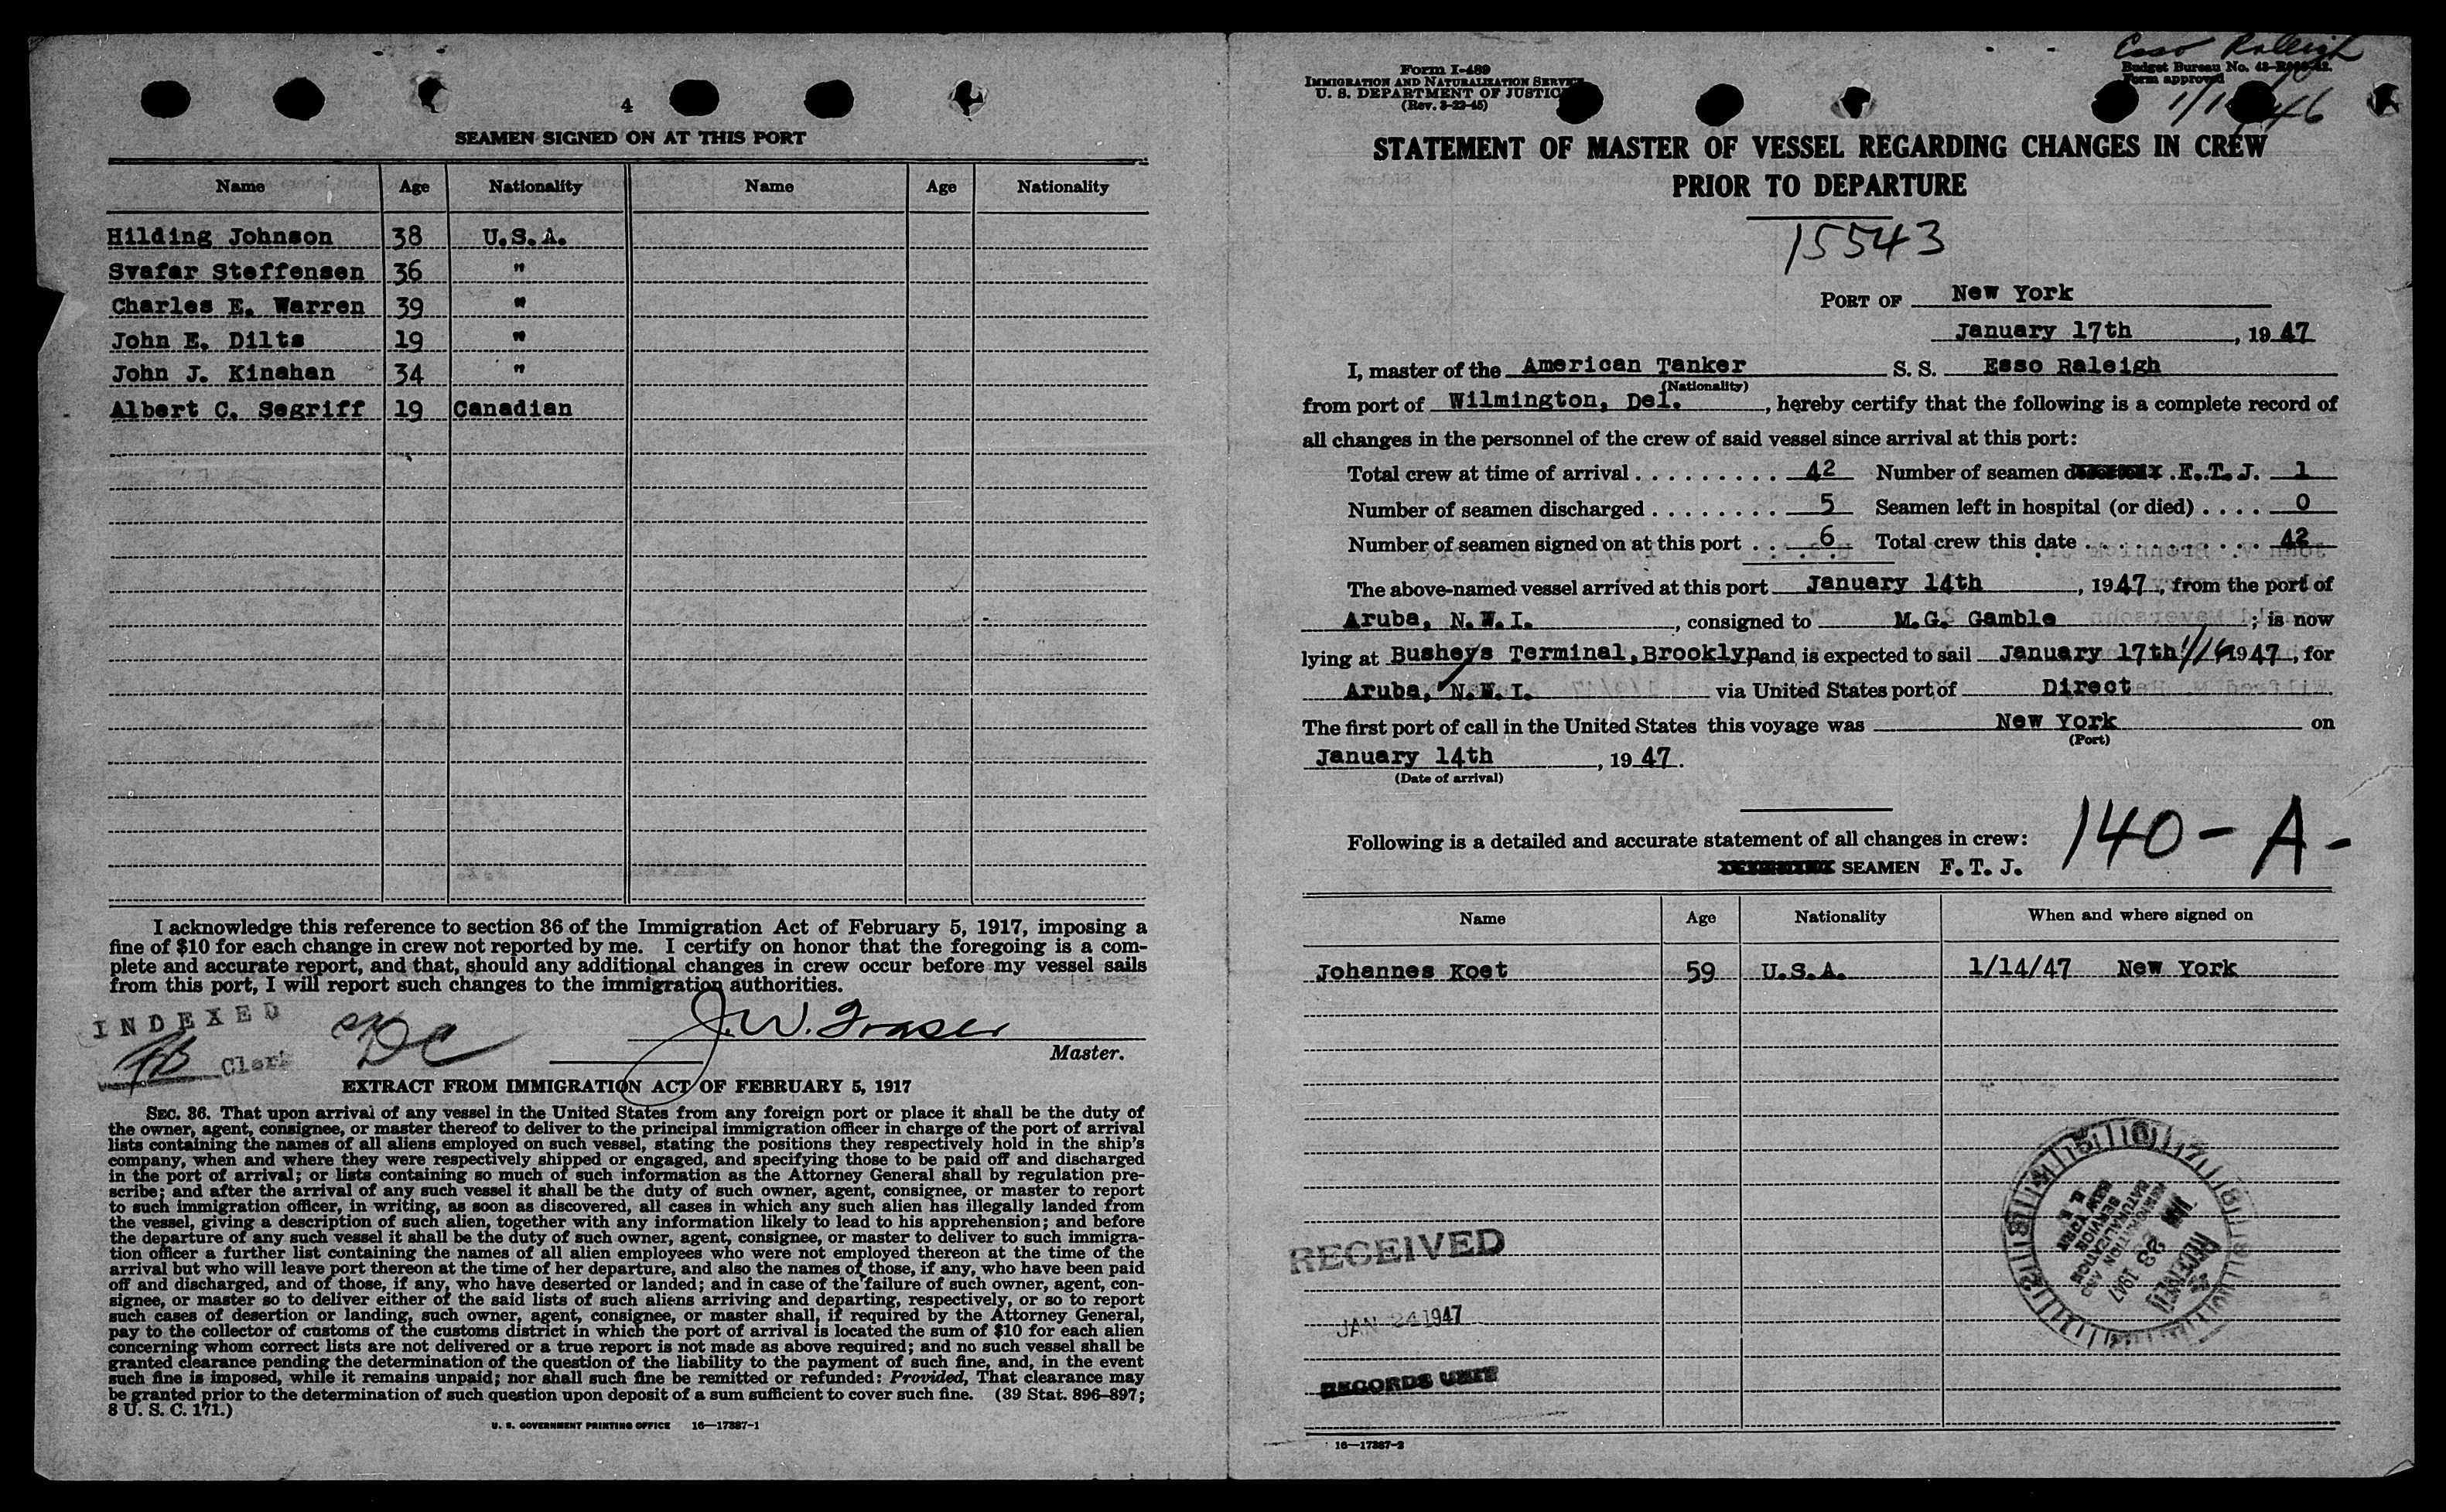 4
SEAMEN SIGNED ON AT THIS PORT
Name Age Nationality Name Age Nationality
Hilding Johnson 38 U.S.A.
Svafar Steffensen 36 "
Charles E. Warren 39 "
John E. Dilts 19 "
John J. Kinahan 34 "
Albert C. Segriff 19 Canadian
I acknowledge this reference to section 36 of the Immigration Act of February 5, 1917, imposing a
fine of $10 for each change in crew not reported by me. I certify on honor that the foregoing is a com-
plete and accurate report, and that, should any additional changes in crew occur before my vessel sails
from this port, I will report such changes to the immigration authorities.
INDEXED
Clerk
DC
J. W. Fraser
Master.
EXTRACT FROM IMMIGRATION ACT OF FEBRUARY 5, 1917
SEC. 36. That upon arrival of any vessel in the United States from any foreign port or place it shall be the duty of
the owner, agent, consignee, or master thereof to deliver to the principal immigration officer in charge of the port of arrival
lists containing the names of all aliens employed on such vessel, stating the positions they respectively hold in the ship's
company, when and where they were respectively shipped or engaged, and specifying those to be paid off and discharged
in the port of arrival; or lists containing so much of such information as the Attorney General shall by regulation pre-
scribe; and after the arrival of any such vessel it shall be the duty of such owner, agent, consignee, or master to report
to such immigration officer, in writing, as soon as discovered, all cases in which any such alien has illegally landed from
the vessel, giving a description of such alien, together with any information likely to lead to his apprehension; and before
the departure of any such vessel it shall be the duty of such owner, agent, consignee, or master to deliver to such immigra-
tion officer a further list containing the names of all alien employees who were not employed thereon at the time of the
arrival but who will leave port thereon at the time of her departure, and also the names of those, if any, who have been paid
off and discharged, and of those, if any, who have deserted or landed; and in case of the failure of such owner, agent, con-
signee, or master so to deliver either of the said lists of such aliens arriving and departing, respectively, or so to report
such cases of desertion or landing, such owner, agent, consignee, or master shall, if required by the Attorney General,
pay to the collector of customs of the customs district in which the port of arrival is located the sum of $10 for each alien
concerning whom correct lists are not delivered or a true report is not made as above required; and no such vessel shall be
granted clearance pending the determination of the question of the liability to the payment of such fine, and, in the event
such fine is imposed, while it remains unpaid; nor shall such fine be remitted or refunded: Provided, That clearance may
be granted prior to the determination of such question upon deposit of a sum sufficient to cover such fine. (39 Stat. 896–897;
8 U. S. C. 171.)
U. S. GOVERNMENT PRINTING OFFICE 16—17387-1
Esso Raleigh
Form I-489
IMMIGRATION AND NATURALIZATION SERVICE
U. S. DEPARTMENT OF JUSTICE
(Rev. 3-22-45)
Budget Bureau No.
Form approved
STATEMENT OF MASTER OF VESSEL REGARDING CHANGES IN CREW
PRIOR TO DEPARTURE
15543
PORT OF New York
January 17th, 1947
I, master of the American Tanker S. S. Esso Raleigh
(Nationality)
from port of Wilmington, Del., hereby certify that the following is a complete record of
all changes in the personnel of the crew of said vessel since arrival at this port:
Total crew at time of arrival . . . . . . . . . 42 Number of seamen F.T.J. 1
Number of seamen discharged . . . . . . . . 5 Seamen left in hospital (or died) . . . . 0
Number of seamen signed on at this port . . 6 Total crew this date . . . . . . . . . . . . 42
The above-named vessel arrived at this port January 14th, 1947, from the port of
Aruba, N.W.I., consigned to M.G. Gamble; is now
lying at Busheys Terminal, Brooklyn and is expected to sail January 17th 1/16 1947, for
Aruba, N.W.I. via United States port of Direct
The first port of call in the United States this voyage was New York on
(Port)
January 14th, 1947.
(Date of arrival)
Following is a detailed and accurate statement of all changes in crew:
140-A-
SEAMEN F.T.J.
Name Age Nationality When and where signed on
Johannes Koet 59 U.S.A. 1/14/47 New York
RECEIVED
JAN 24 1947
RECORDS UNIT
RECEIVED
JAN 23 1947
IMMIGRATION AND
NATURALIZATION
SERVICE
NEW YORK
16—17387-2